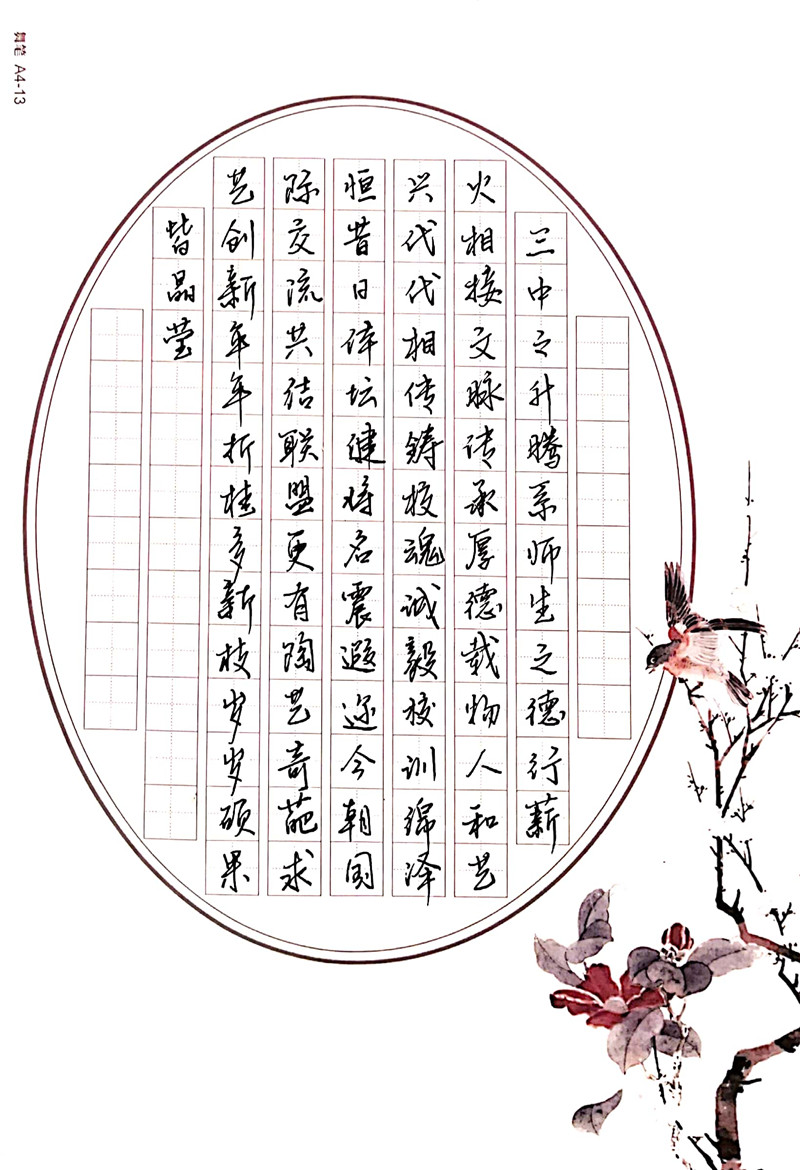 三中之升腾系师生之德行薪
火相接文脉传承厚德载物人和艺
兴代代相传铸校魂诚毅校训绵泽
恒昔日体坛健将名震遐迩今朝国
际交流共结联盟更有陶艺奇葩求
艺创新年年折桂多新枝岁岁硕果
皆晶莹
舞笔 A4-13